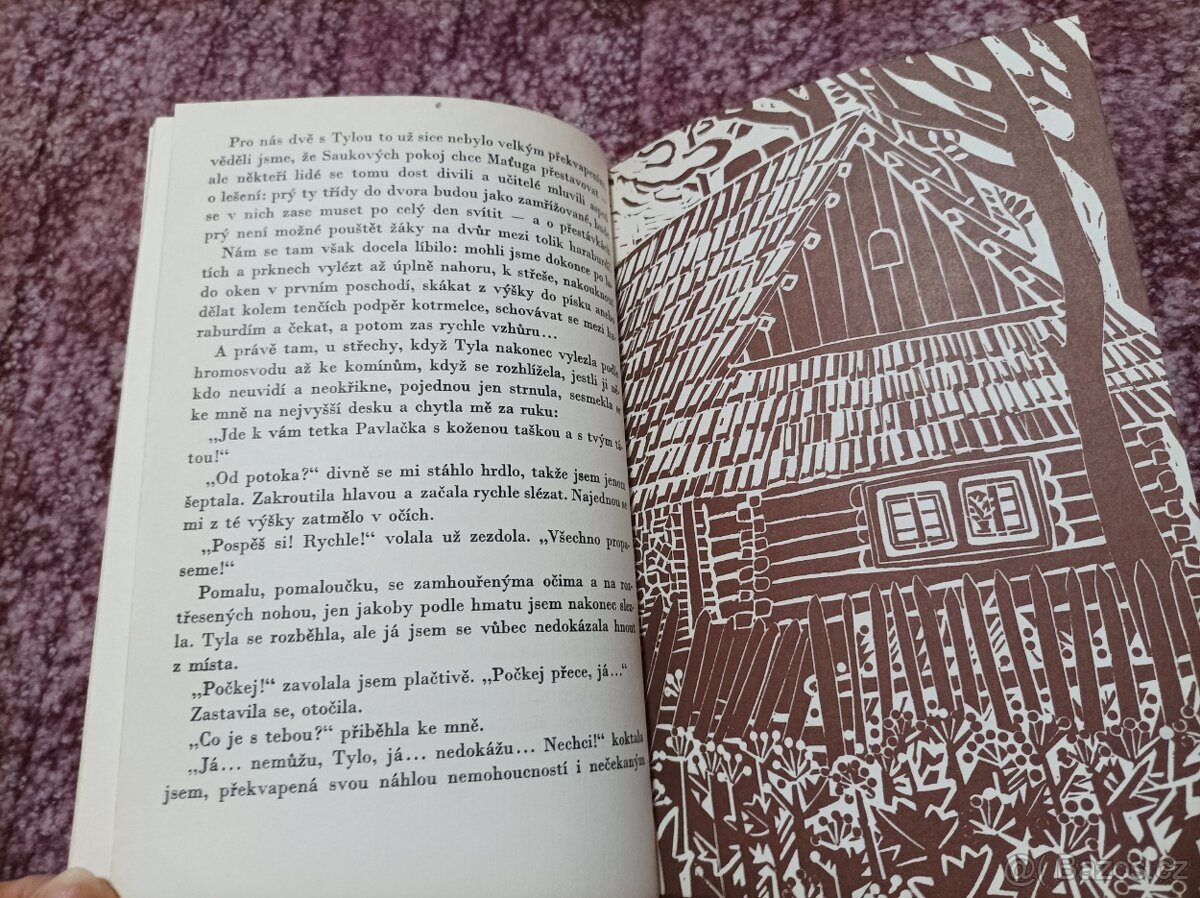 Pro nás dvě s Tylou to už sice nebylo velkým překvapením,
věděli jsme, že Saukových pokoj chce Maťuga přestavovat
ale někteří lidé se tomu dost divili a učitelé mluvili aspoň
o lešení: prý ty třídy do dvora budou jako zamřížované, bude
se v nich zase muset po celý den svítit — a o přestávkách
prý není možné pouštět žáky na dvůr mezi tolik haraburdí.
Nám se tam však docela líbilo: mohli jsme dokonce po la-
tích a prknech vylézt až úplně nahoru, k střeše, nakouknout
do oken v prvním poschodí, skákat z výšky do písku anebo
dělat kolem tenčích podpěr kotrmelce, schovávat se mezi ha-
raburdím a čekat, a potom zas rychle vzhůru...
A právě tam, u střechy, když Tyla nakonec vylezla podle
hromosvodu až ke komínům, když se rozhlížela, jestli ji ně-
kdo neuvidí a neokřikne, pojednou jen strnula, sesmekla se
ke mně na nejvyšší desku a chytla mě za ruku:
„Jde k vám tetka Pavlačka s koženou taškou a s tvým tá-
tou!“
„Od potoka?“ divně se mi stáhlo hrdlo, takže jsem jenom
šeptala. Zakroutila hlavou a začala rychle slézat. Najednou se
mi z té výšky zatmělo v očích.
„Pospěš si! Rychle!“ volala už zezdola. „Všechno propa-
seme!“
Pomalu, pomaloučku, se zamhouřenýma očima a na roz-
třesených nohou, jen jakoby podle hmatu jsem nakonec slez-
la. Tyla se rozběhla, ale já jsem se vůbec nedokázala hnout
z místa.
„Počkej!“ zavolala jsem plačtivě. „Počkej přece, já...“
Zastavila se, otočila.
„Co je s tebou?“ přiběhla ke mně.
„Já... nemůžu, Tylo, já... nedokážu... Nechci!“ koktala
jsem, překvapená svou náhlou nemohoucností i nečekaným
Bazos.cz